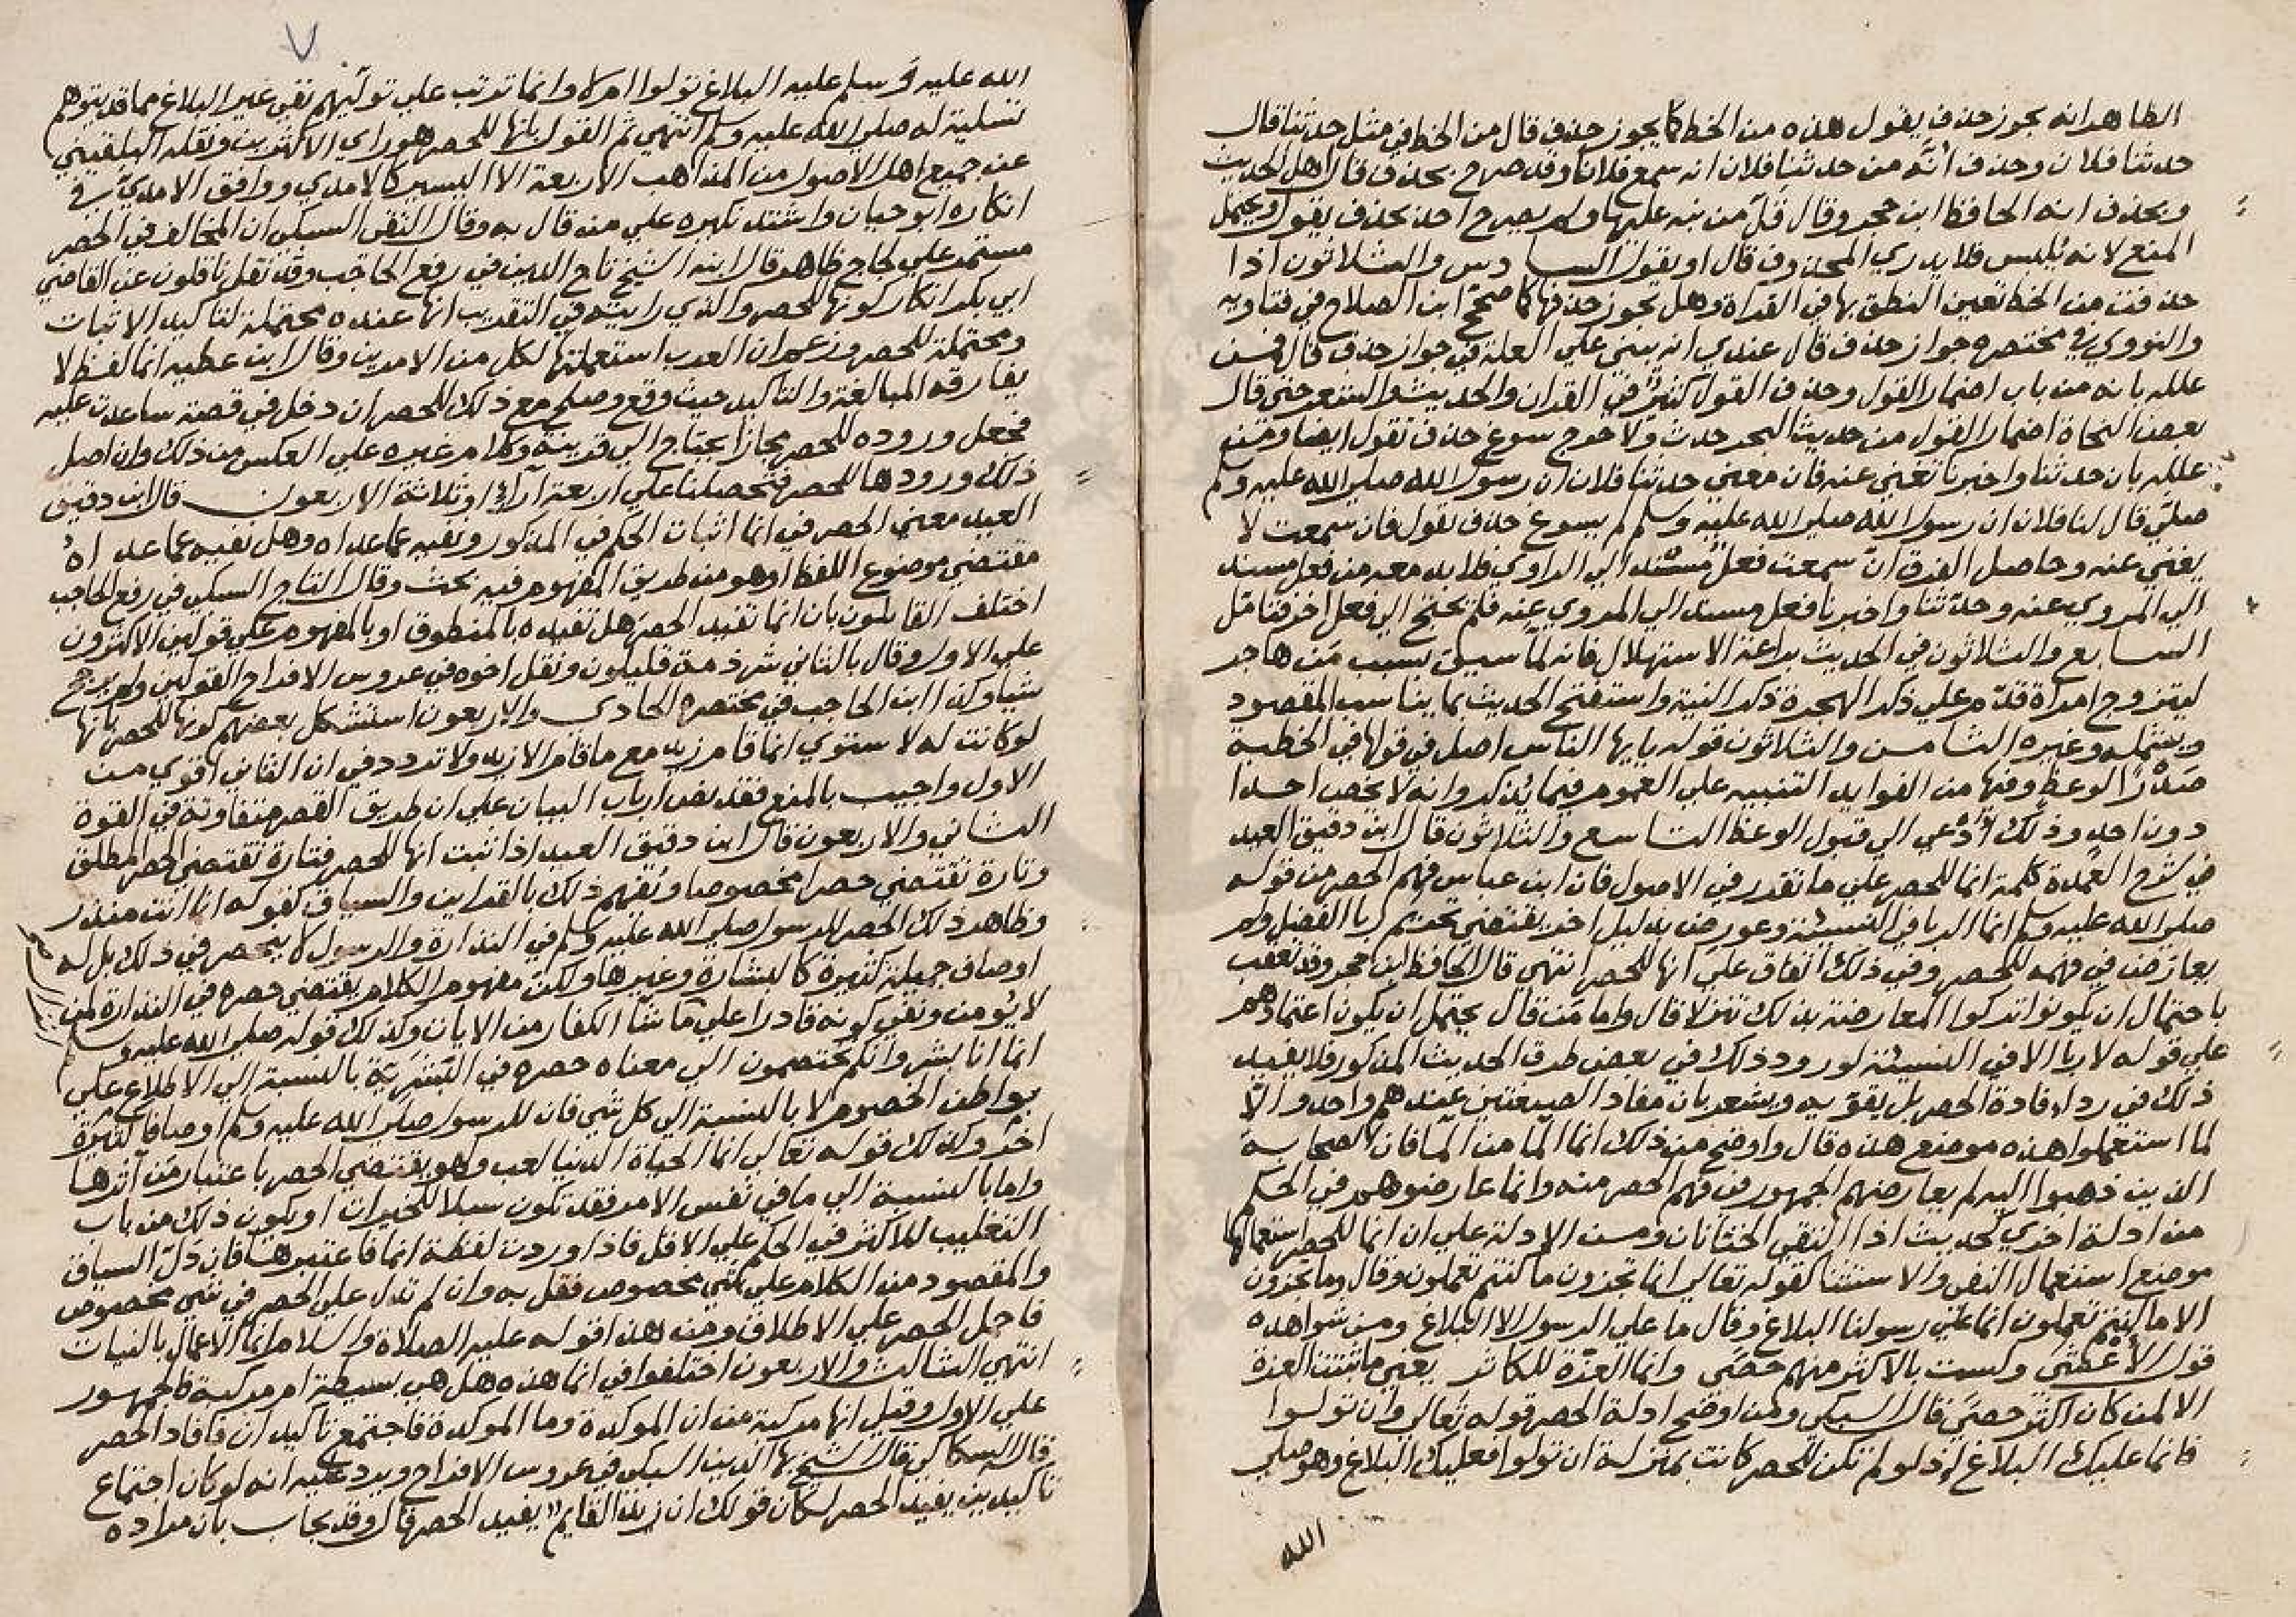 الظاهر انه يجوز حذف يقول هذه من الخط كما يجوز حذف قال من الخط في مثل حدثنا قال
حدثنا فلان وحذف أنّه من حدثنا فلان انه سمع فلانا وقد صرح بحذف قال اهل الحديث
وبحذف انه الحافظ ابن حجر وقال قلّ من نبه عليها ولم يصرح احد بحذف يقول ويحتمل
المنع لانه يُلبس فلا يدري المحذوف قال او يقول السادس والثلاثون اذا
حذفت من الخط تعين النطق بها في القراة وهل يجوز حذفها كما صححّ ابن الصلاح في فتاويه
والنووي في مختصره جواز حذف قال عندي انه يبني علي العلة في جواز حذف قال فمن
علله بانه من باب اضمار القول وحذف القول كثيرٌ في القران والحديث والشعر حتى قال
بعض النحاة اضمار القول من حديث البحر حدث ولا حرج سوغ حذف تقول ايضا ومن
علله بان حدثنا واخبرنا تغني عنه فان معني حدثنا فلان ان رسول الله صلى الله عليه وسلم
صلي قال لنا فلان ان رسول الله صلى الله عليه وسلم لم يسوغ حذف تقول فان سمعت لا
يغني عنه وحاصل الفرق انّ سمعت فعل مُسْنَد الي الراوي فلا بد معه من فعل مسند
الي المروي عنه وحدّثنا واخبرنا فعل مسند الي المروي عنه فلم نحتج الي فعل اخر فتامّل
السابع والثلاثون في الحديث براعة الاستهلال فانه لمّا سيق بسبب مَن هاجر
ليتزوج امراة قدّم علي ذكر الهجرة ذكر النية واستفتح الحديث بما يناسب المقصود
ويشمله وغيره الثامن والثلاثون قوله يايها الناس اصل في قولها في الخطبة
صَدْرًا لوعظٍ وفيها من الفوايد التنبيه علي العموم فيما يُذكر وانه لا يخص احدا
دون احدٍ وذلك أدْعي الي قبول الوعظ التاسع والثلاثون قال ابن دقيق العيد
في شرح العمدة كلمة انما للحصر علي ما تقدر في الاصول فان ابن عباس فهم الحصر من قوله
صلى الله عليه وسلم انما الربا في النسيئة وعورض بدليل اخر يقتضي تحريم ربا الفضل ولم
يعارض في فهمه للحصر وفي ذلك اتفاق علي انها للحصر انتهي قال الحافظ ابن حجر وقد تعقب
باحتمال ان يكونوا تركوا المعارضة بذلك تنزلا قال واما من قال يحتمل ان يكون اعتمادهم
علي قوله لا ربا الا في النسيئة لورود ذلك في بعض طرق الحديث المذكور فلا يفيد
ذلك في رد افادة الحصر بل يقوّيه ويشعر بان مفاد الصيغتين عندهم واحد والّا
لما استعملوا هذه موضع هذه قال واوضح من ذلك انما الما من الما فان الصحابة
الذين ذهبوا اليه لم يعارضهم الجمهور في فهم الحصر منه وانما عارضوهم في الحكم
من ادلة اخري كحديث اذا التقي الختانان ومن الادلة علي ان انما للحصر استعمالها
موضع استعمال النفي والاستثنا كقوله تعالي انما تجزون ما كنتم تعملون وقال وما تجزون
الا ما كنتم تعملون انما علي رسولنا البلاغ وقال ما علي الرسول الا البلاغ ومن شواهده
قول الأعشي ولست بالاكثر منهم حصَي وانما العزّة للكاثر يعني ما ثبتت العزة
الا لمن كان اكثر حصَي قال السبكي ومن اوضح ادلة الحصر قوله تعالي وان تولوا
فانما عليك البلاغ اذ لو لم تكن للحصر كانت بمنزلة ان تولوا فعليك البلاغ وهو صلي
الله
الله عليه وسلم عليه البلاغ تولوا ام لا وانما ترتب علي تولّيهم نفي غير البلاغ مما قد يتوهم
تسلية له صلى الله عليه وسلم انتهي ثم القول بانها للحصر هو راي الاكثرين ونقله البلقيني
عن جميع اهل الاصول من المذاهب الاربعة الا اليسير كالامدي ووافق الامديّ في
انكاره ابو حيان واشتد نكيره علي من قال به وقال التقي السبكي ان المخالف في الحصر
مستمر علي لجاج ظاهر قال ابنه الشيخ تاج الدين في رفع الحاجب وقد نقل ناقلون عن القاضي
ابي بكر انكار كونها للحصر والذي رايته في التقريب انها عنده محتملة لتاكيد الاثبات
ومحتملة للحصر وزعم ان العرب استعملتها لكل من الامرين وقال ابن عطيه انما لفظ لا
يفارقه المبالغة والتاكيد حيث وقع وصلح مع ذلك للحصر ان دخل في قصة ساعدت عليه
فجعل وروده للحصر مجازا يحتاج الي قرينة وكلام غيره علي العكس من ذلك وان اصل
ذلك ورودها للحصر فتحصلنا علي اربعة آراء او ثلاثة الاربعون قال ابن دقيق
العيد معني الحصر في انما اثبات الحكم في المذكور ونفيه عما عداه وهل نفيه عما عداهُ
مقتضي موضوع اللفظ او هو من طريق المفهوم فيه بحث وقال التاج السبكي في رفع الحاجب
اختلف القايلون بان انما تفيد الحصر هل تفيده بالمنطوق او بالمفهوم علي قولين الاكثرون
علي الاول وقال بالثاني شرذمة قليلون ونقل اخوه في عروس الافراح القولين ولم يرجح
شيا وكذا ابن الحاجب في مختصره الحادي والاربعون استشكل بعضهم كونها للحصر بانها
لو كانت له لاستوي انما قام زيد مع ما قام الا زيد ولا تردد في ان الثاني اقوي من
الاول واجيب بالمنع فقد نص ارباب البيان علي ان طريق القصر متفاوتة في القوة
الثاني والاربعون قال ابن دقيق العيد اذا ثبت انها للحصر فتارة تقتضي الحصر المطلق
وتارة تقتضي حصرا مخصوصا ويُفهم ذلك بالقراين والسياق كقوله انما انت منذر
وظاهر ذلك الحصر للرسول صلى الله عليه وسلم في النذارة والرسول لا ينحصر في ذلك بل له
اوصاف جميلة كثيرة كالبشارة وغيرها ولكن مفهوم الكلام يقتضي حصره في النذارة لمن
لا يُؤمن ونفي كونه قادرا علي ما شآ الكفار من الايات وكذلك قوله صلى الله عليه وسلم
انما انا بشر وانكم تختصمون الي معناه حصره في البَشَرِيّة بالنسبة الي الاطلاع علي
بواطن الخصوم لا بالنسبة الي كل شي فان للرسول صلى الله عليه وسلم اوصافا كثيرة
اخَر وكذلك قوله تعالي انما الحياة الدنيا لعب ولهو يقتضي الحصر باعتبار من آثرها
واما بالنسبة الي ما في نفس الامر فقد تكون سبيلا للخيرات او يكون ذلك من باب
التغليب للاكثر في الحكم علي الاقل فاذا وردت لفظة انما فاعتبرها فان دلّ السياق
والمقصود من الكلام علي شي مخصوص فقل به وان لم تدل علي الحصر في شي مخصوص
فاحمل الحصر علي الاطلاق ومن هذا قوله عليه الصلاة والسلام انما الاعمال بالنيات
انتهي الثالث والاربعون اختلفوا في انما هذه هل هي بسيطة ام مركبة فالجمهور
علي الاول وقيل انها مركبة من ان الموكدة وما الموكدة فاجتمع تاكيدان فافاد الحصر
قاله السكاكي قال الشيخ بها الدين السبكي في عروس الافراح ويرد عليه انه لو كان اجتماع
تاكيدين يفيد الحصر لكان قولك ان زيدا لقايم يفيد الحصر قال وقد يجاب بان مراده